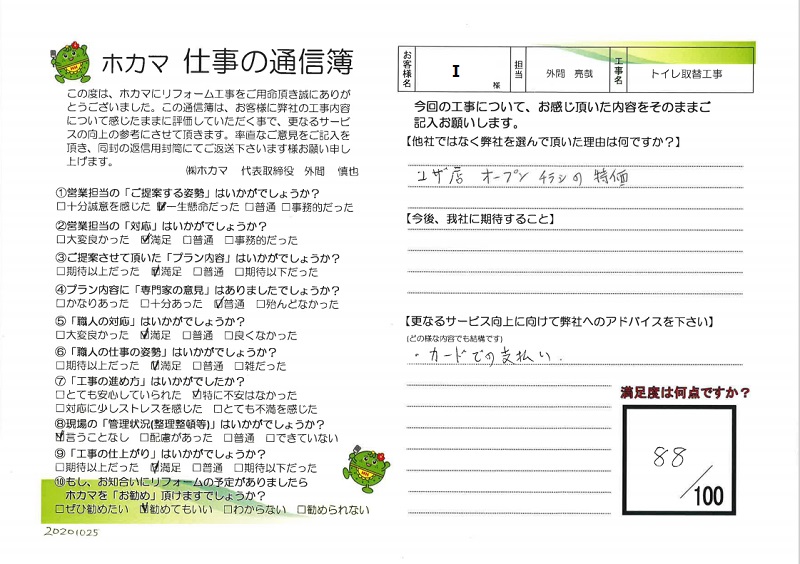 ホカマ 仕事の通信簿
この度は、ホカマにリフォーム工事をご用命頂き誠にありが
とうございました。この通信簿は、お客様に弊社の工事内容
について感じたままに評価していただく事で、更なるサービ
スの向上の参考にさせて頂きます。率直なご意見をご記入を
頂き、同封の返信用封筒にてご返送下さいます様お願い申し
上げます。
㈱ホカマ 代表取締役 外間 慎也
①営業担当の「ご提案する姿勢」はいかがでしょうか？
□十分誠意を感じた ☑一生懸命だった □普通 □事務的だった
②営業担当の「対応」はいかがでしょうか？
□大変良かった ☑満足 □普通 □事務的だった
③ご提案させて頂いた「プラン内容」はいかがでしょうか？
□期待以上だった ☑満足 □普通 □期待以下だった
④プラン内容に「専門家の意見」はありましたでしょうか？
□かなりあった □十分あった ☑普通 □殆んどなかった
⑤「職人の対応」はいかがでしょうか？
□大変良かった ☑満足 □普通 □良くなかった
⑥「職人の仕事の姿勢」はいかがでしょうか？
□期待以上だった ☑満足 □普通 □雑だった
⑦「工事の進め方」はいかがでしたか？
□とても安心していられた ☑特に不安はなかった
□対応に少しストレスを感じた □とても不満を感じた
⑧現場の「管理状況(整理整頓等)」はいかがでしょうか？
☑言うことなし □配慮があった □普通 □できていない
⑨「工事の仕上がり」はいかがでしょうか？
□期待以上だった ☑満足 □普通 □期待以下だった
⑩もし、お知合いにリフォームの予定がありましたら
ホカマを「お勧め」頂けますでしょうか？
□ぜひ勧めたい ☑勧めてもいい □わからない □勧められない
20201025
お客様名 I 様 担当 外間 亮哉 工事名 トイレ取替工事
今回の工事について、お感じ頂いた内容をそのままご
記入お願いします。
【他社ではなく弊社を選んで頂いた理由は何ですか？】
ユザ店 オープン チラシの 特価
【今後、我社に期待すること】
【更なるサービス向上に向けて弊社へのアドバイスを下さい】
(どの様な内容でも結構です)
・カードでの支払い．
満足度は何点ですか？
88
/100